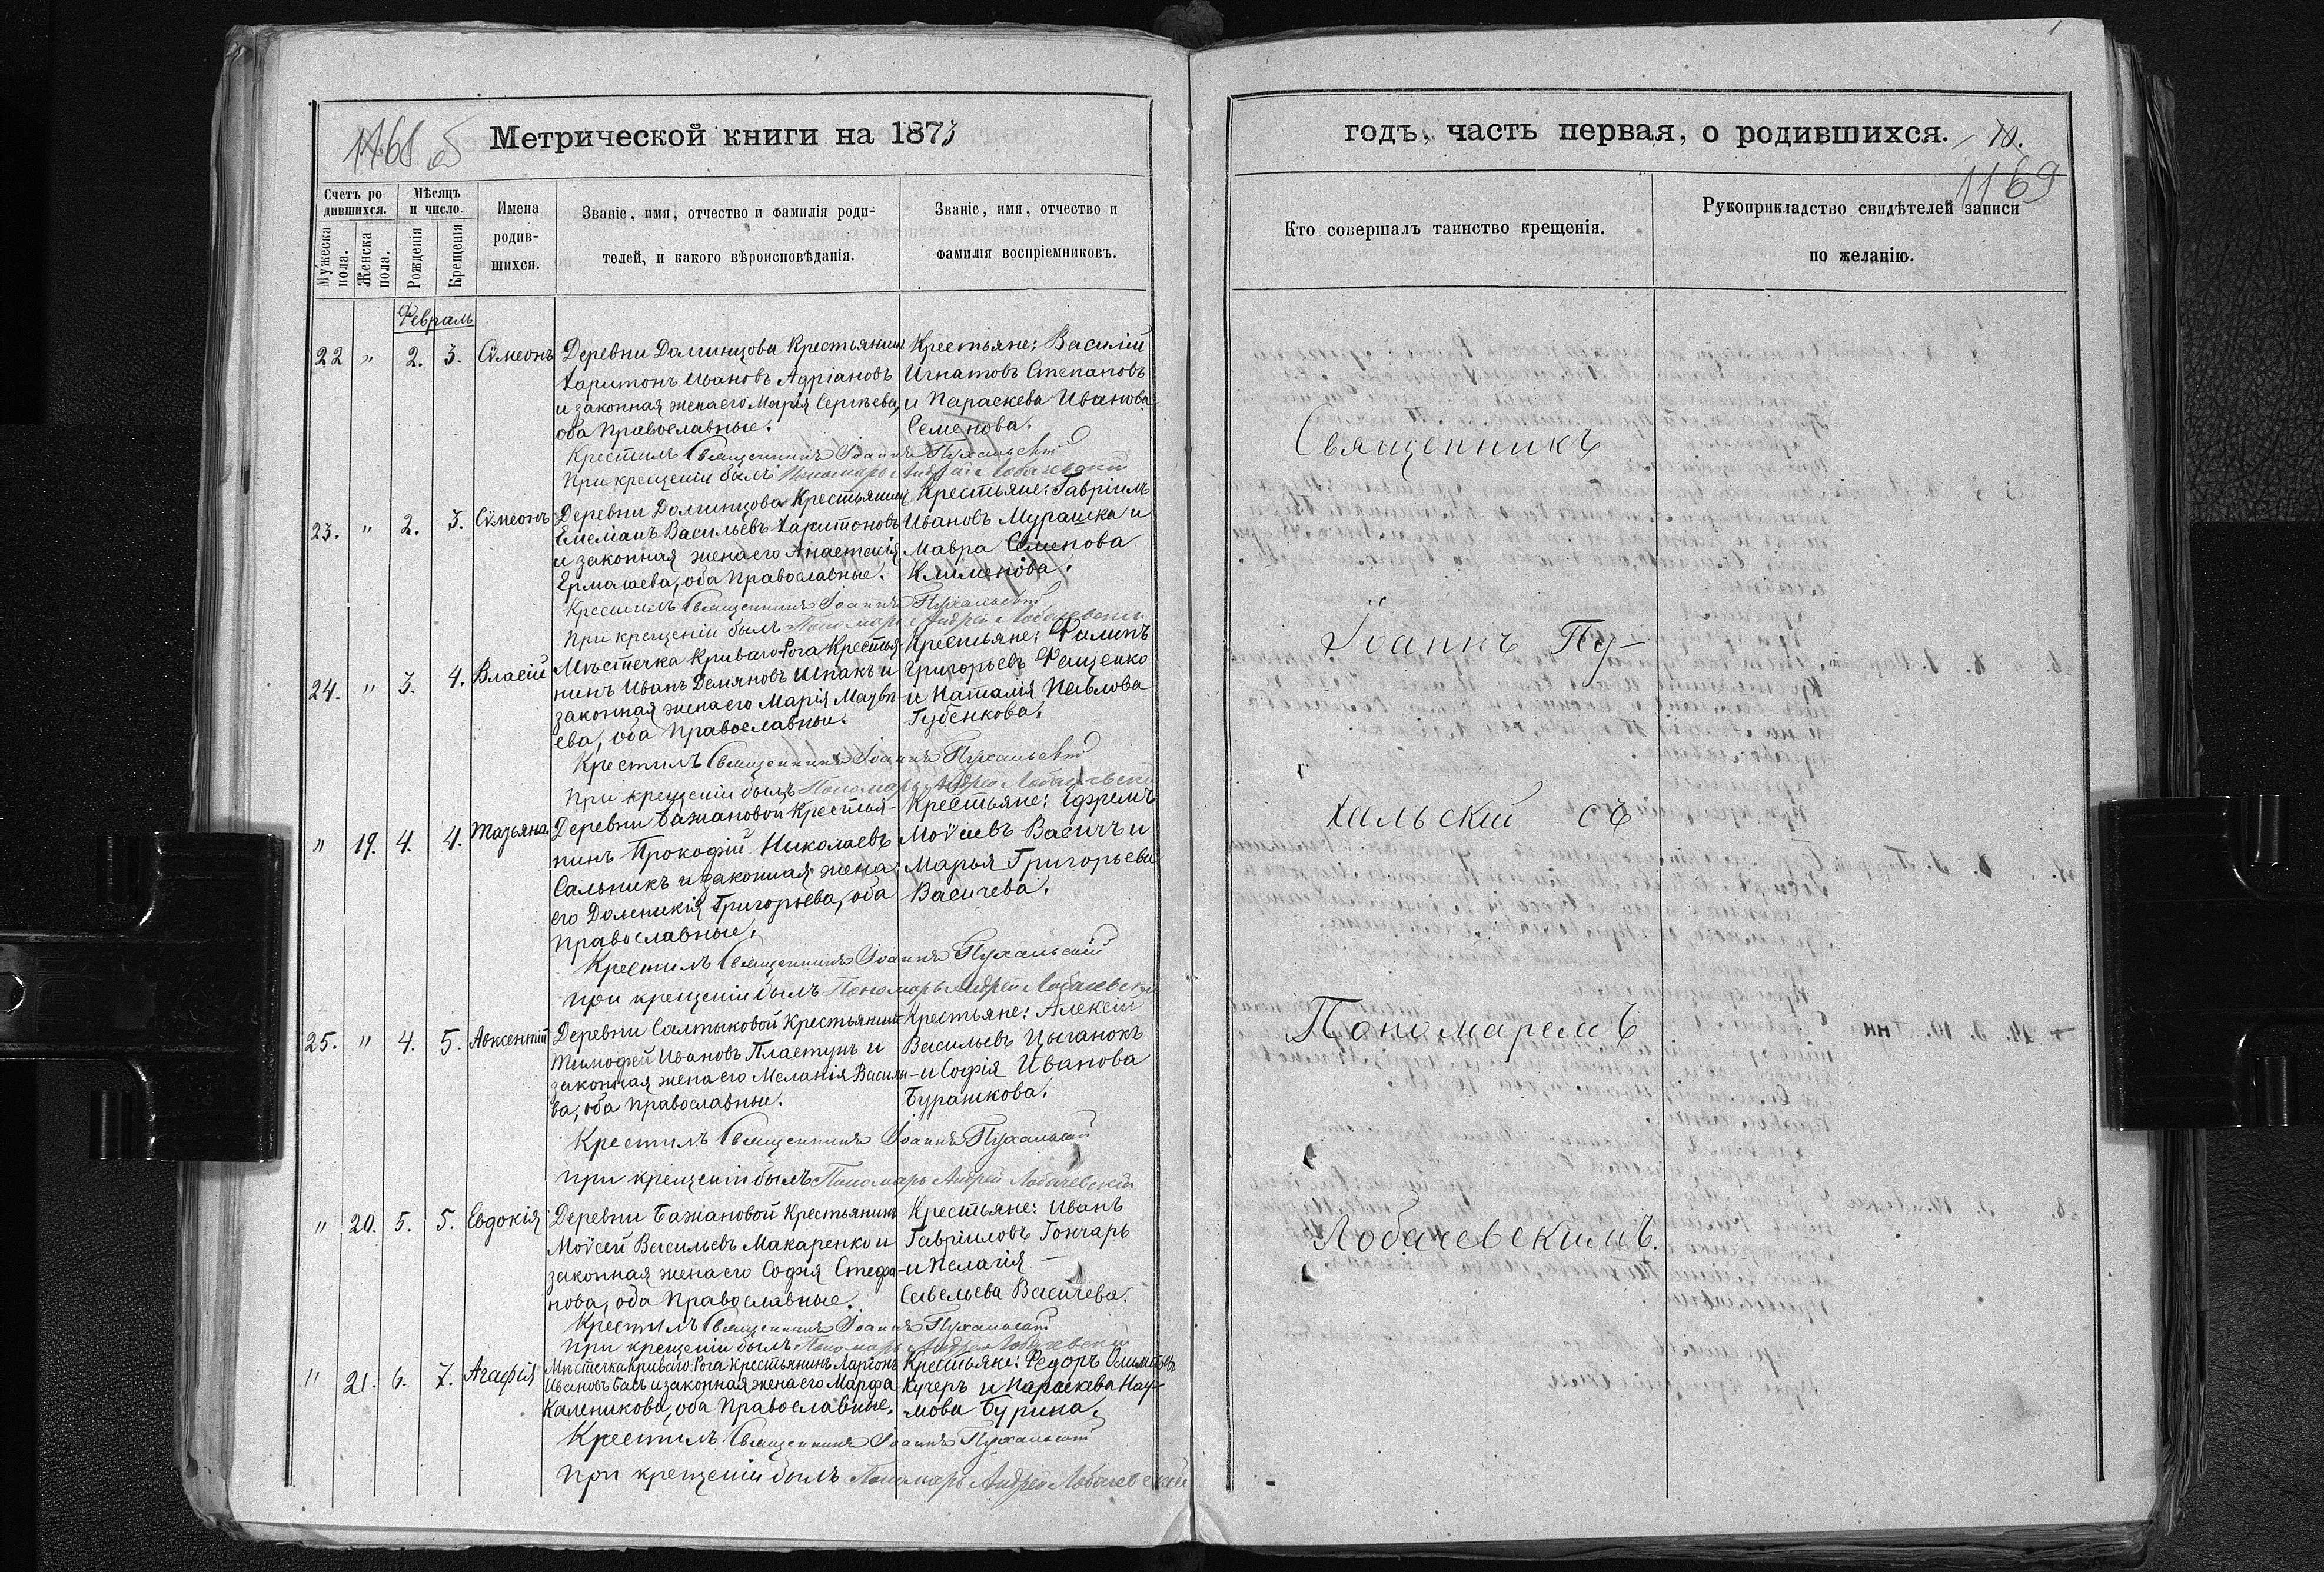 1168 об
Метрической книги на 1873
Счетъ ро
дившихся.
Мѣсяцъ
и число.
Мужеска
пола.
Женска
пола.
Рожденія
Крещенія
Имена
родив-
шихся.
Званіе, имя, отчество и фамилія роди-
телей, и какого вѣроисповѣданія.
Званіе, имя, отчество и
фамилія воспріемниковъ.
Февраль
22 " 2. 3. Сѵмеонъ
Деревни Долинцовы Крестьянинъ
Харитонъ Ивановъ Адріановъ
и законная жена его Марія Сергѣева,
оба Православные.
Крестьяне: Василій
Игнатовъ Степановъ
и Параскева Иванова
Семенова.
Крестилъ Священникъ Іоаннъ Пухальскій
При крещеніи былъ Пономарь Андрей Лобачевскій
23. " 2. 3. Сѵмеонъ
Деревни Долинцова Крестьянинъ
Емеліанъ Васильевъ Харитоновъ
и законная жена его Анастасія
Ермашева, оба Православные.
Крестьяне: Гавріилъ
Ивановъ Мурашка и
Мавра Семенова
Клименова.
Крестилъ Священникъ Іоаннъ Пухальскій
При крещеніи былъ Пономарь Андрей Лобачевскій
24. " 3. 4. Власій
Мѣстечка Криваго-Рога Крестья-
нинъ Иванъ Демяновъ Шпакъ и
законная жена его Марія Матвѣ-
ева, оба Православные.
Крестьяне: Филипъ
Григорьевъ Фещенко
и Наталія Павлова
Губенкова.
Крестилъ Священникъ Іоаннъ Пухальскій
При крещеніи былъ Пономарь Андрей Лобачевскій
" 19. 4. 4. Татьяна
Деревни Бажановой Крестья-
нинъ Прокофій Николаевъ
Сальникъ и законная жена
его Доменикія Григорьева, оба
Православные.
Крестьяне: Ефремъ
Моѵсевъ Васичъ и
Марья Григорьева
Васичева.
Крестилъ Священникъ Іоаннъ Пухальскій
при крещеніи былъ Пономарь Андрей Лобачевскій
25. " 4. 5. Авксентій
Деревни Салтыковой Крестьянинъ
Тимофей Ивановъ Пластунъ и
законная жена его Меланія Василье-
ва, оба Православные.
Крестьяне: Алексій
Васильевъ Цыганокъ
и Софія Иванова
Бурашкова.
Крестилъ Священникъ Іоаннъ Пухальскій
при крещеніи былъ Пономарь Андрей Лобачевскій
" 20. 5. 5. Евдокія
Деревни Бажановой Крестьянинъ
Моѵсей Васильевъ Макаренко и
законная жена его Софія Стефа-
нова, оба Православные.
Крестьяне: Иванъ
Гавріиловъ Гончарь
и Пелагія
Савельева Васичева.
Крестилъ Священникъ Іоаннъ Пухальскій
При крещеніи былъ Пономарь Андрей Лобачевскій
" 21. 6. 7. Агафія
Мѣстечка Криваго-Рога Крестьянинъ Ларіонъ
Ивановъ Басъ и законная жена его Марфа
Каленикова, оба Православные.
Крестьяне: Федоръ
Кучеръ и Параскева Нау-
мова Бурина.
Крестилъ Священникъ Іоаннъ Пухальскій
При крещеніи былъ Пономарь Андрей Лобачевскій
1
годъ, часть первая, о родившихся.
10.
1169
Кто совершалъ таинство крещенія.
Рукоприкладство свидѣтелей записи
по желанію.
Священникъ
Іоаннъ Пу-
хальскій съ
Пономаремъ
Лобачевскимъ.